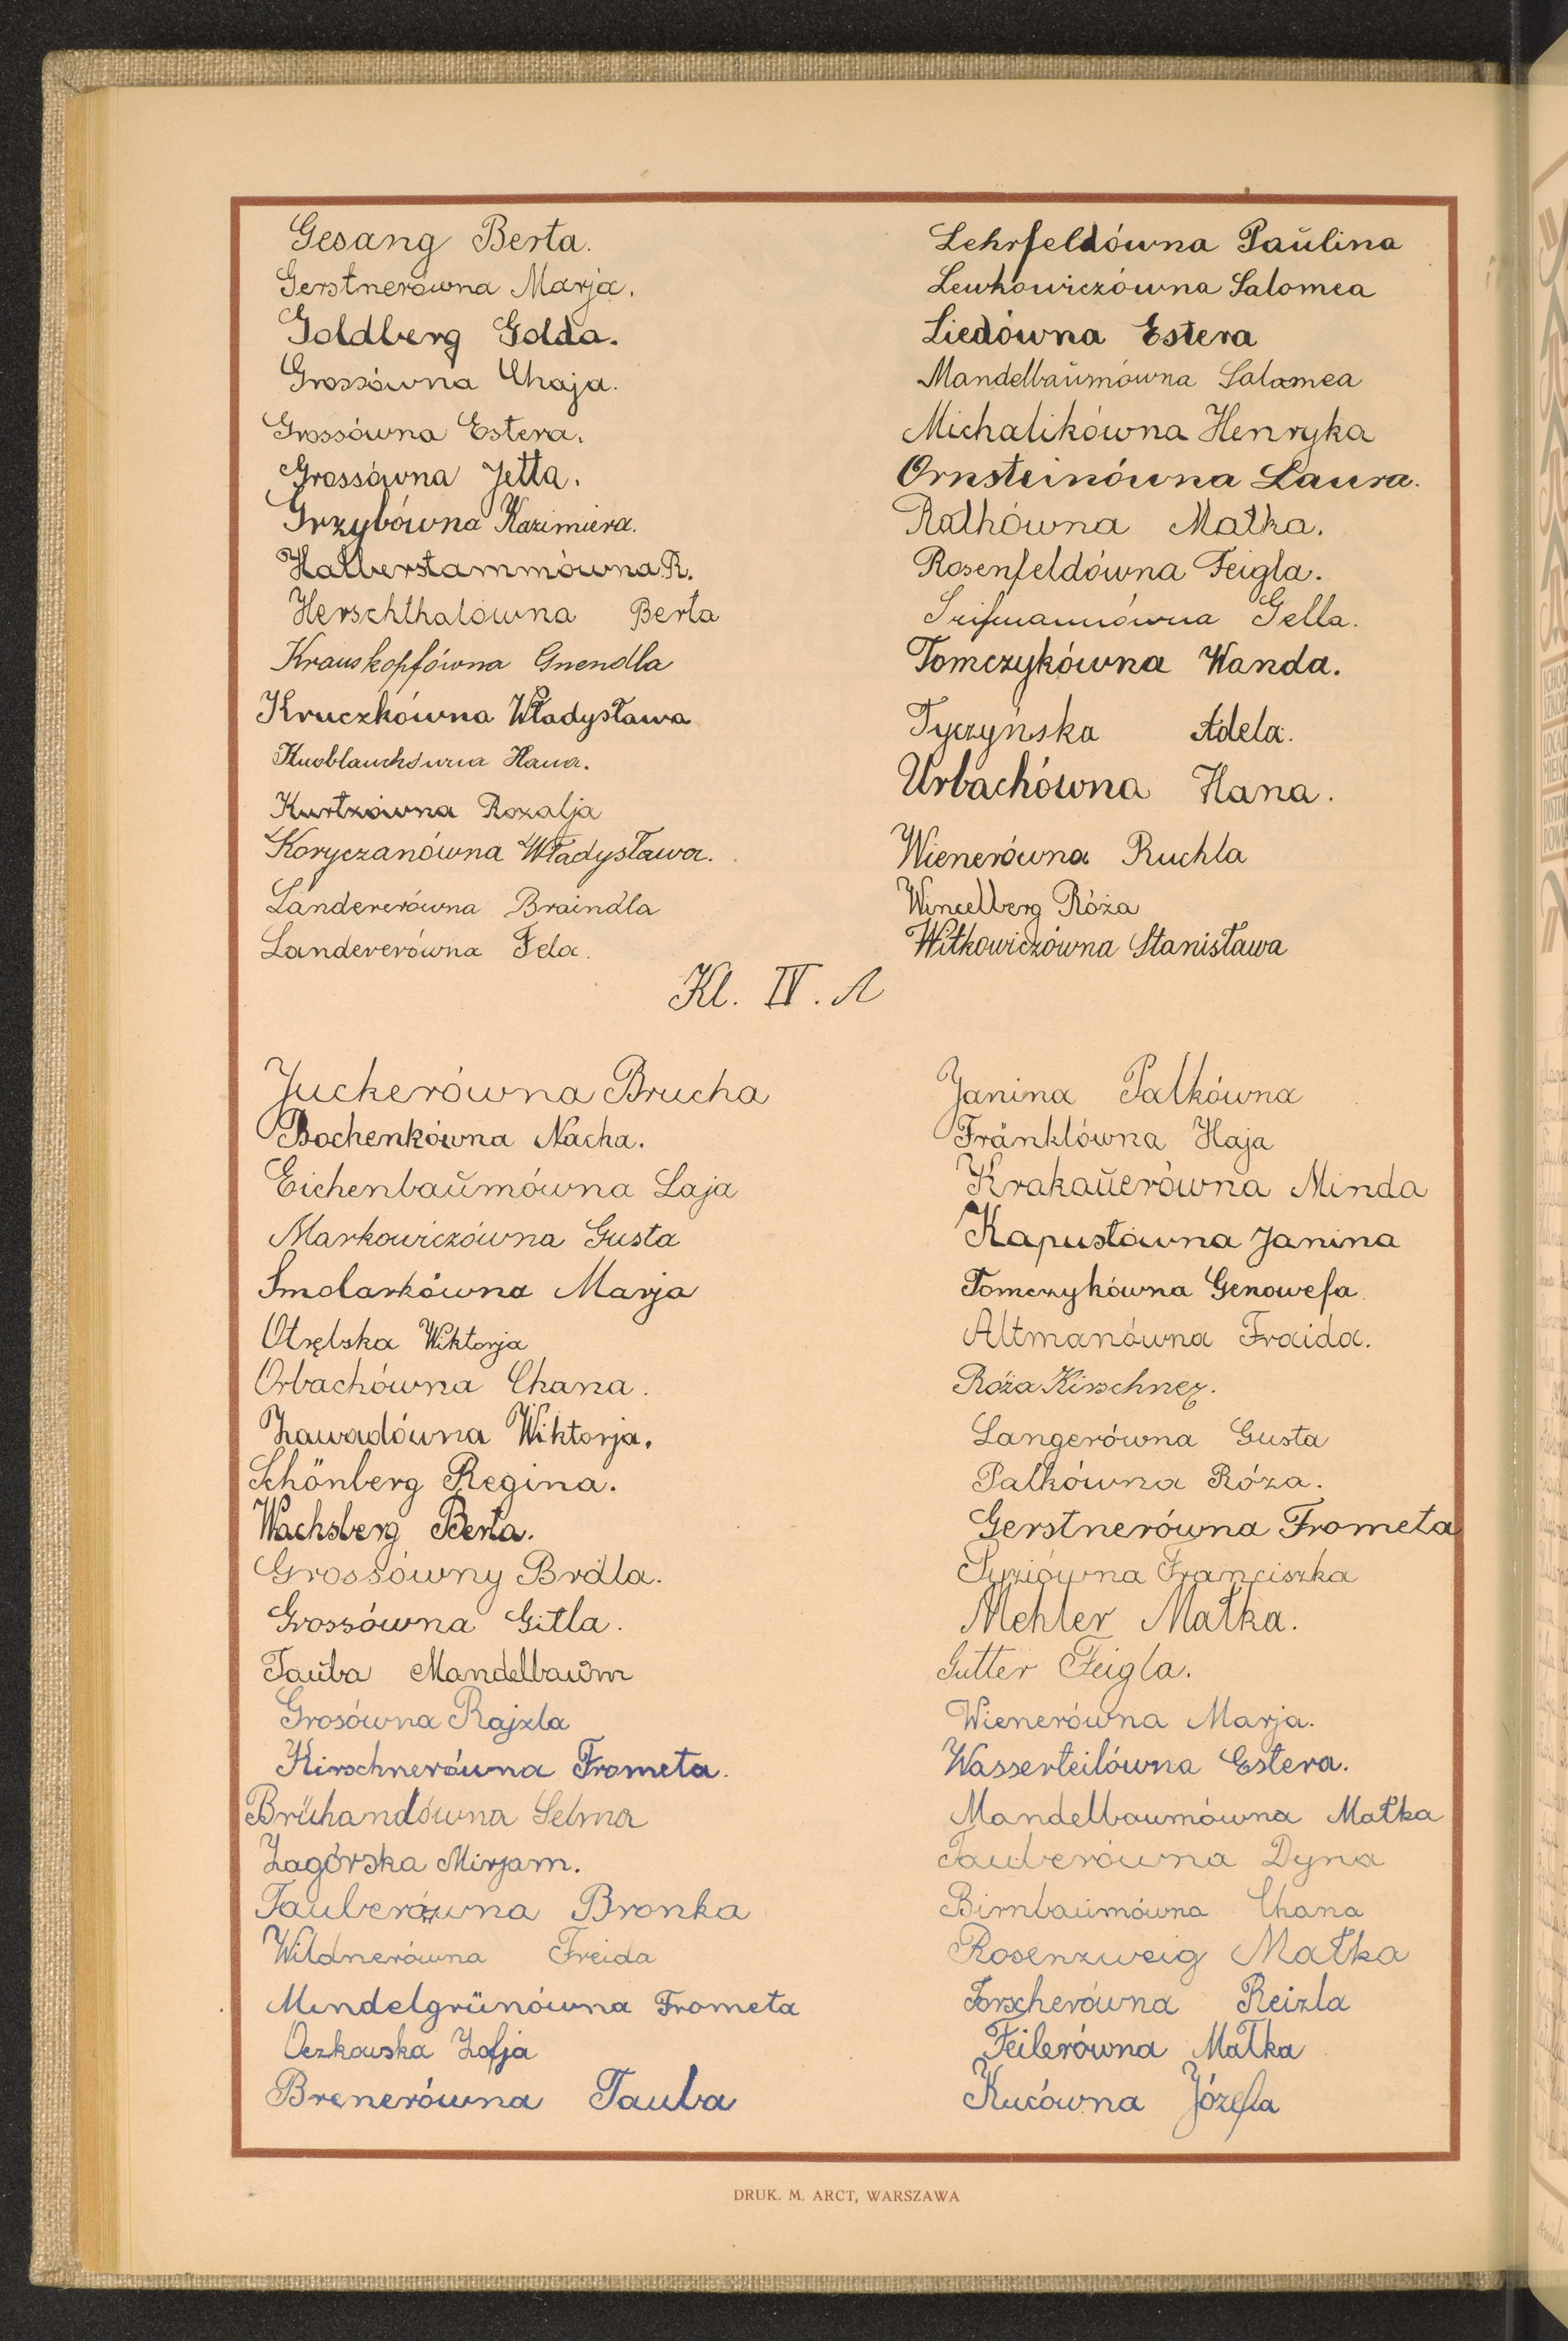 Gesang Berta.
Gerstnerówna Marja.
Goldberg Golda.
Grossówna Chaja.
Grossówna Estera.
Grossówna Jetta.
Grzybówna Kazimiera.
Halberstammówna R.
Herschthalówna Berta
Krauskopfówna Gnendla
Kruczkówna Władysława
Knoblauchówna Hana.
Kurtzówna Rozalja
Koryczanówna Władysława.
Landererówna Braindla
Landererówna Fela.
Lehrfeldówna Paŭlina
Lewkowiczówna Salomea
Liedówna Estera
Mandelbaŭmówna Salomea
Michalikówna Henryka
Ornsteinówna Laura.
Rathówna Matka.
Rosenfeldówna Feigla.
Gella.
Tomczykówna Wanda.
Tyczyńska Adela.
Urbachówna Hana.
Wienerówna Ruchla
Wincelberg Róża
Witkowiczówna Stanisława
Kl. IV. A
Juckerówna Brucha
Bochenkówna Nacha.
Eichenbaŭmówna Laja
Markowiczówna Gusta
Smolarkówna Marja
Otrębska Wiktorja
Orbachówna Chana.
Zawadówna Wiktorja.
Schönberg Regina.
Wachsberg Berta.
Grossówny Brdla.
Grossówna Gitla.
Taŭba Mandelbaŭm
Grosówna Rajzla
Kirschnerówna Frometa.
Brühandówna Selma
Zagórska Mirjam.
Tauberówna Bronka
Wildnerówna Freida
Mindelgrünówna Frometa
Oczkowska Zofja
Brenerówna Tauba
Janina Palkówna
Fränklówna Haja
Krakaŭerówna Minda
Kapustówna Janina
Tomczykówna Genowefa
Altmanówna Fraida.
Róża Kirschner.
Langerówna Gusta
Palkówna Róza.
Gerstnerówna Frometa
Pyziówna Franciszka
Mehler Małka.
Gutter Feigla.
Wienerówna Marja.
Wasserteilówna Estera.
Mandelbaumówna Małka
Tauberówna Dyna
Birnbaŭmówna Chana
Rosenzweig Małka
Forscherówna Reizla
Feilerówna Małka
Kucówna Józefa
DRUK. M. ARCT, WARSZAWA